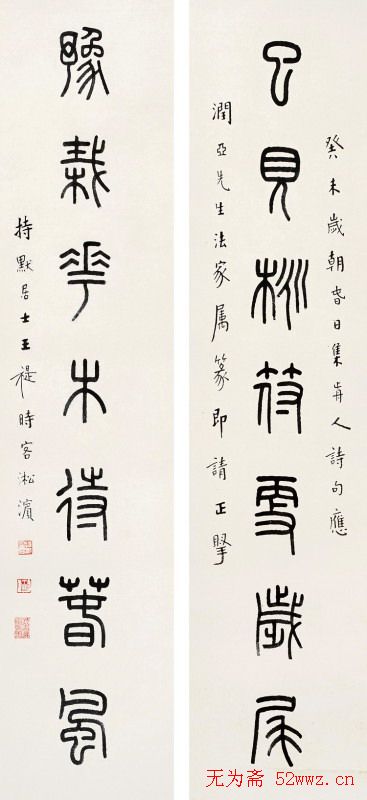 癸未歲朝旾日集歬人詩句應
已見桃符更歲矦
潤亞先生法家属篆即請正掔
豫栽花木待春風
持默居士王禔時客淞濱
无为斋 52wwz.cn